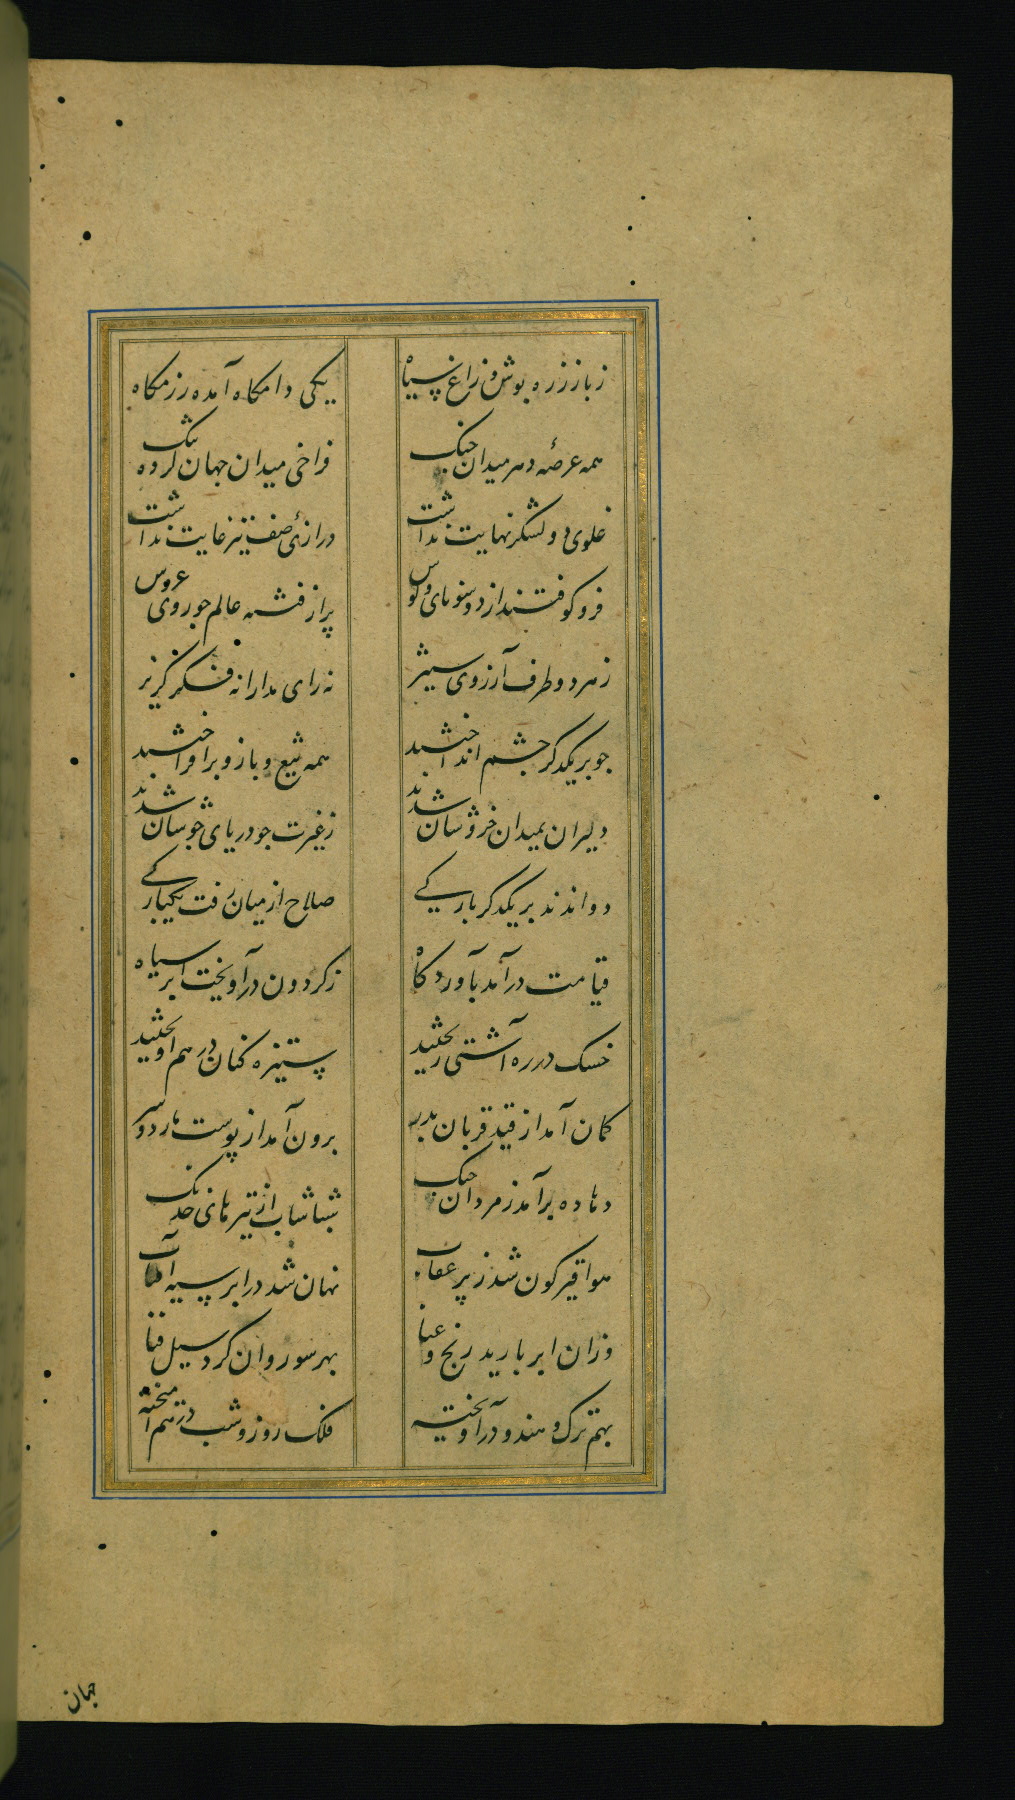 ز باز زره پوش و زاغ سپاه یکی دامگاه آمده رزمگاه
همه عرصه دهر میدان جنگ فراخی میدان جهان کرده تنک
غلوی دو لشکر نهایت نداشت درازئ صف نیز غایت نداشت
فرو کوفتند از دو سو نای و کوس پر از فتنه عالم چو روی عروس
ز هر دو طرف آرزوی ستیز نه رای مدارا نه فکر گریز
چو بر یکدگر چشم انداختند همه تیغ و بازو برافراختند
دلیران بمیدان خروشان شدند ز غیرت چو دریای جوشان شدند
دواندند بر یکدگر بارگی صلاح از میان رفت یکبارگی
قیامت درآمد بآوردگاه ز گردون درآویخت ابر سیاه
خسک در ره آشتی ریختند ستیزه کنان درهم آویختند
کمان آمد از قید قربان بدر برون آمد از پوست مار دو سر
دهاده برآمد ز مردان جنگ شباشاب از تیرهای خدنگ
هوا قیرگون شد ز پر عقاب نهان شد در ابر سیه آفتاب
وزان ابر بارید رنج و عنا بهر سو روان کرد سیل فنا
بهم ترک و هندو درآویخته فلک روز و شب درهم آمیخته
جهان